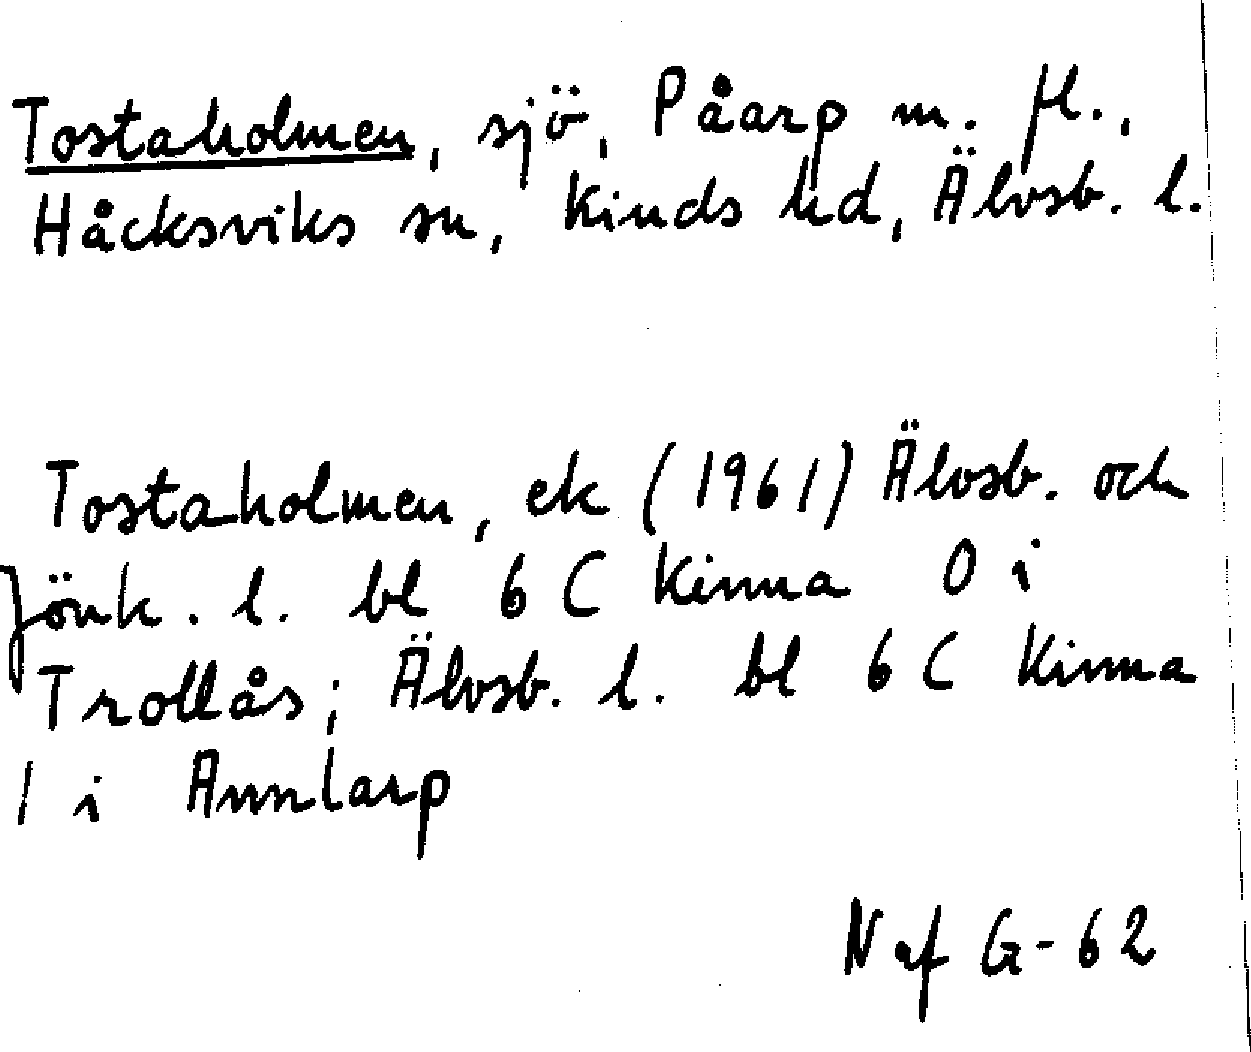 Tostaholmen, sjö, Påarp m. fl.,
Håcksviks sn, Kinds hd, Älvsb. l.
Tostaholmen, ek (1961) Älvsb. och
Jönk. l. bl 6 C Kinna 0 i
Trollås; Älvsb. l. bl 6 C Kinna
1 i Annlarp
N af G-62